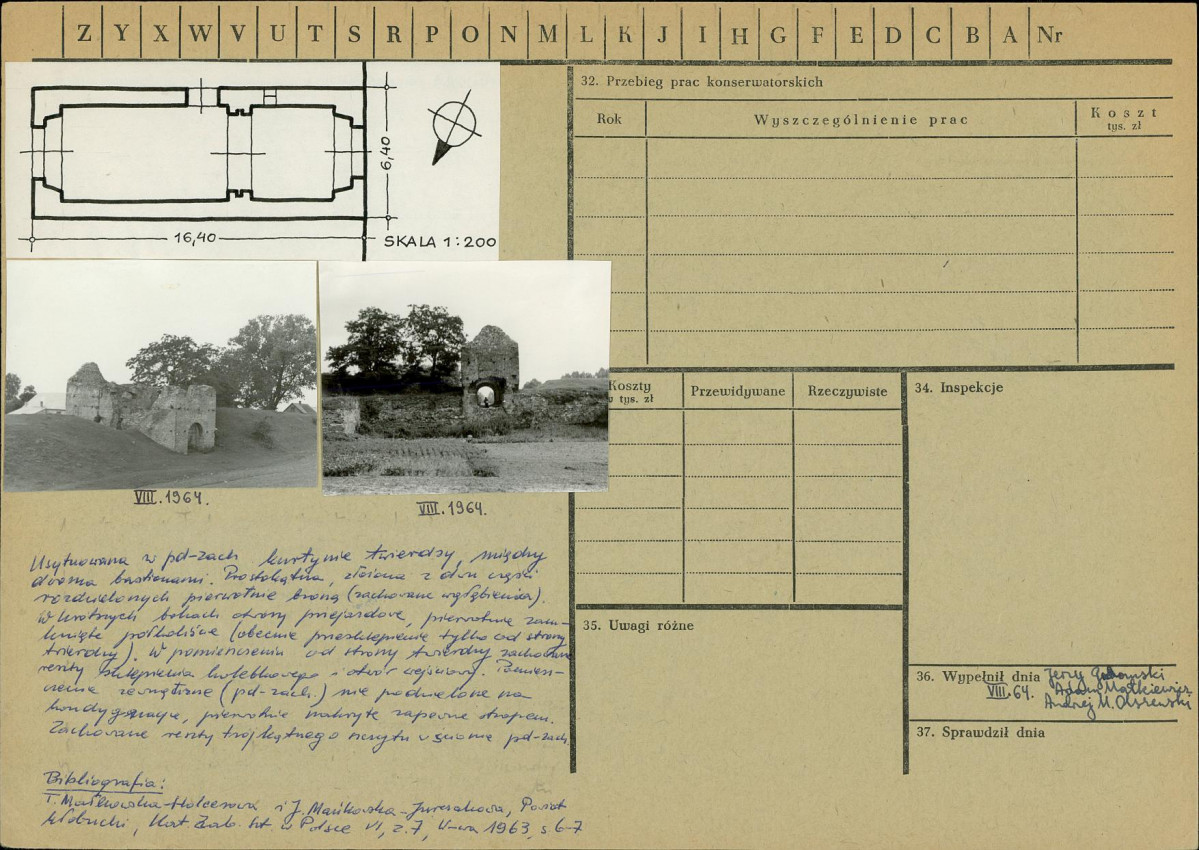 Z Y X W V U T S R P O N M L K J I H G F E D C B A Nr
6,40
16,40
SKALA 1:200
VIII.1964.
VIII.1964.
Usytuowana w pd-zach kurtynie twierdzy, między
dwoma bastionami. Prostokątna, złożona z dwu części
rozdzielonych pierwotnie broną (zachowane wgłębienia).
W krótszych bokach otwory przejazdowe, pierwotnie zam-
knięte półkoliście (obecnie przesklepienie tylko od strony
twierdzy). W pomieszczeniu od strony twierdzy zachowane
resztki sklepienia kolebkowego i otwór wejściowy. Pomiesz-
czenie zewnętrzne (pd-zach.) nie podzielone na
kondygnacje, pierwotnie nakryte zapewne stropem.
Zachowane resztki trójkątnego szczytu w ścianie pd-zach.
Bibliografia:
T. Mańkowska-Holcerowa i J. Mańkowska-Jurczakowa, Powiat
kłobucki, Kat. Zab. Szt. w Polsce VI, z. 7, W-wa 1963, s. 6-7
32. Przebieg prac konserwatorskich
Rok
Wyszczególnienie prac
Koszt
tys. zł
Koszty
w tys. zł
Przewidywane
Rzeczywiste
34. Inspekcje
35. Uwagi różne
36. Wypełnił dnia Jerzy
VIII.64. Adam Małkiewicz
Andrzej M. Olszewski
37. Sprawdził dnia